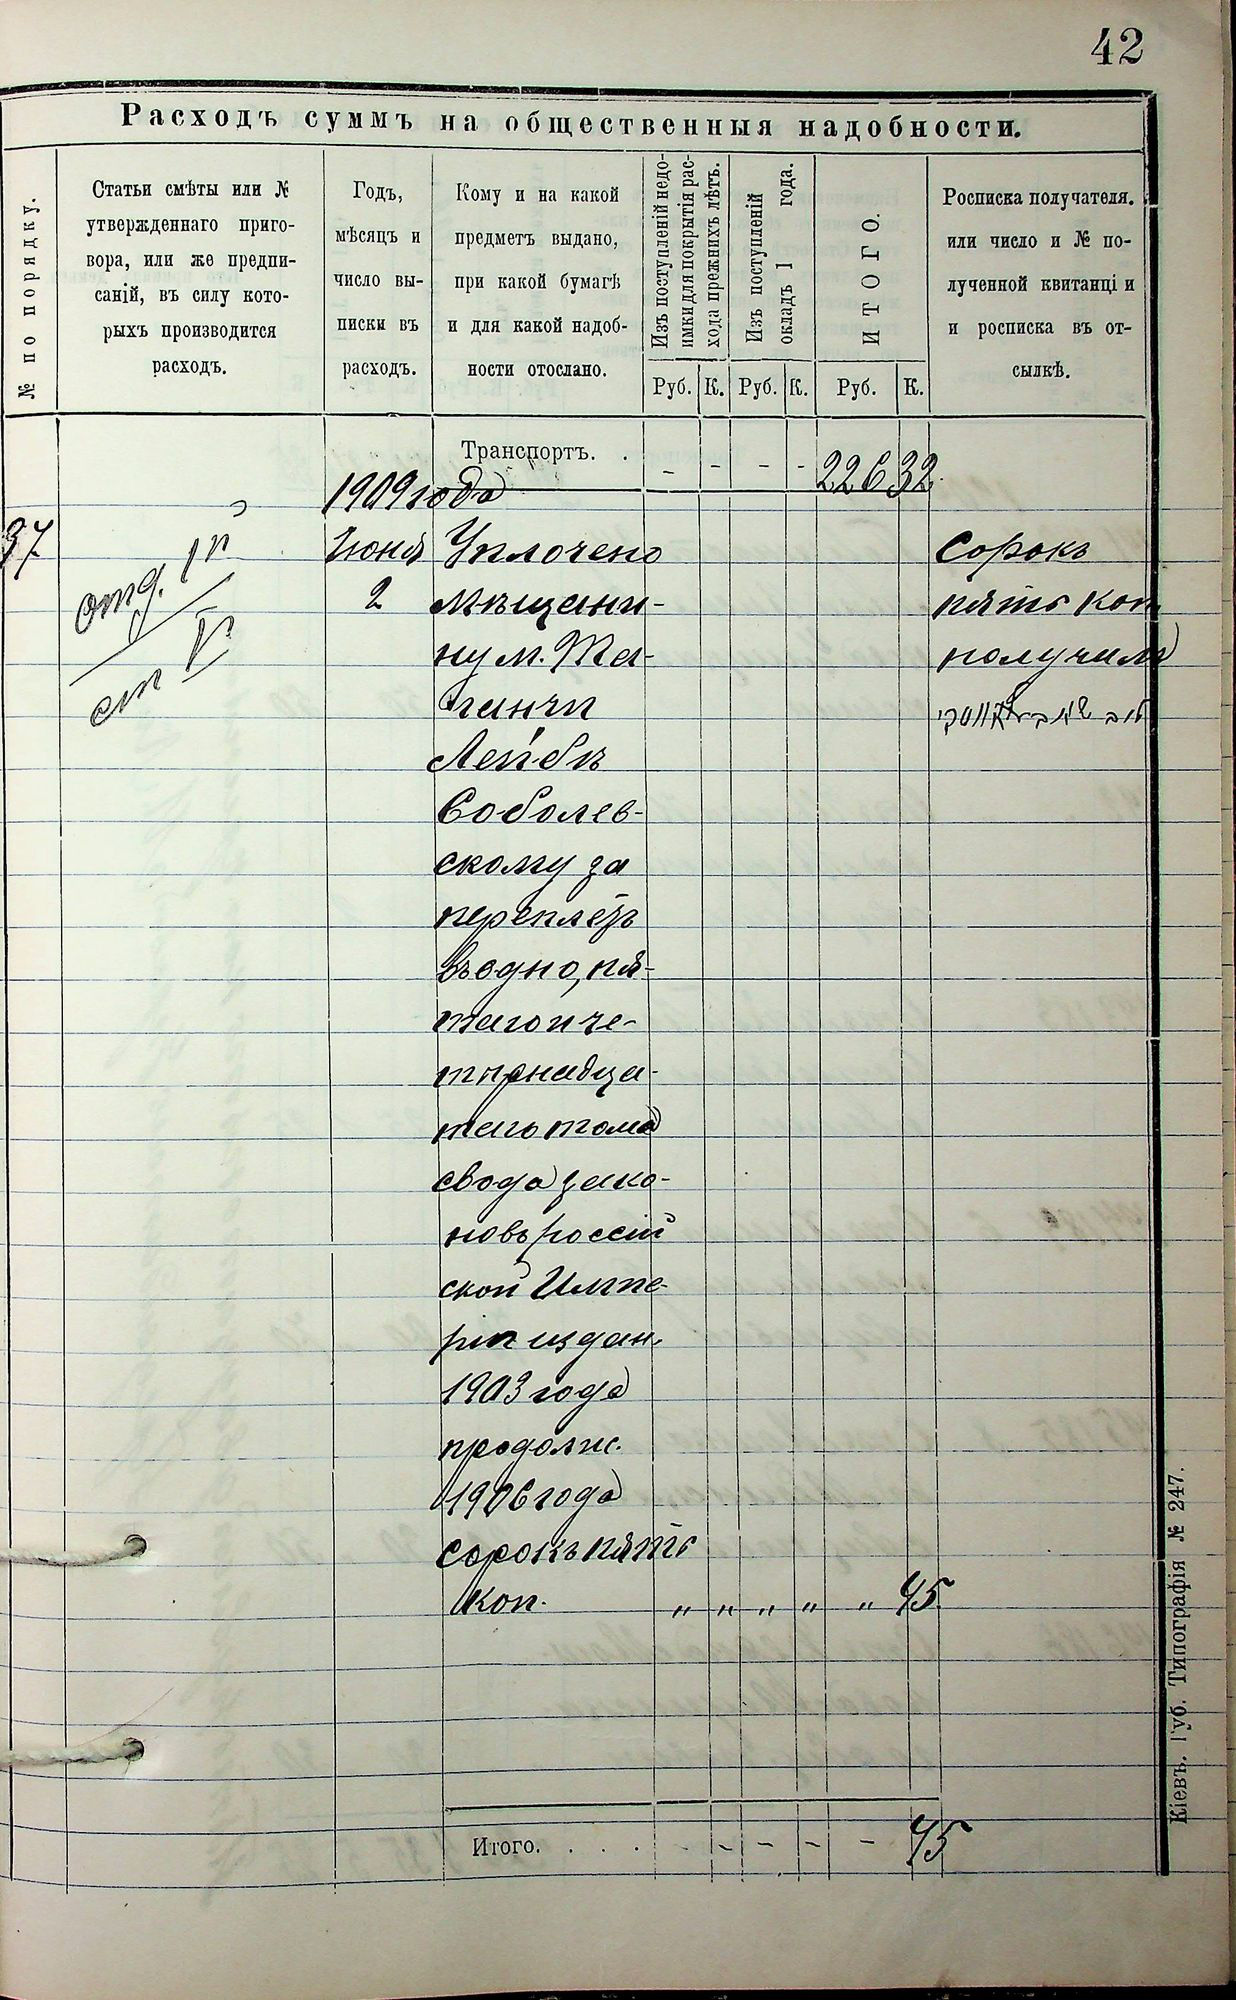 42
Расходъ суммъ на общественныя надобности.
№ по порядку.
Статьи смѣты или № утвержденнаго приго-
вора, или же предпи-
саній, въ силу кото-
рыхъ производится
расходъ.
Годъ,
мѣсяцъ и
число вы-
писки въ
расходъ.
Кому и на какой
предметъ выдано,
при какой бумагѣ
и для какой надоб-
ности отослано.
Изъ поступленій недо-
имки для покрытія рас-
хода прежнихъ лѣтъ.
Изъ поступленій
окладъ 1 года.
ИТОГО.
Росписка получателя.
или число и № по-
лученной квитанціи
и росписка въ от-
сылкѣ.
Руб. К. Руб. К. Руб. К.
Транспортъ. . - - - - 226 32
1909 года
37
отд. IV
ст V
Іюня
2
Уплочено
мѣщани-
ну м. Та-
ганчи
Лейбѣ
Соболев-
скому за
переплетъ
въодно, пя-
таго и че-
тырнадца-
таго тома
свода зако-
новъ россій
ской Импе-
ріи издан.
1903 года
продолж.
1906 года
сорокъ пять
коп. " " " " " 45
Сорокъ
пять коп
получилъ
Итого. . . . - - - - 45
Кіевъ. Губ. Типографія № 247.